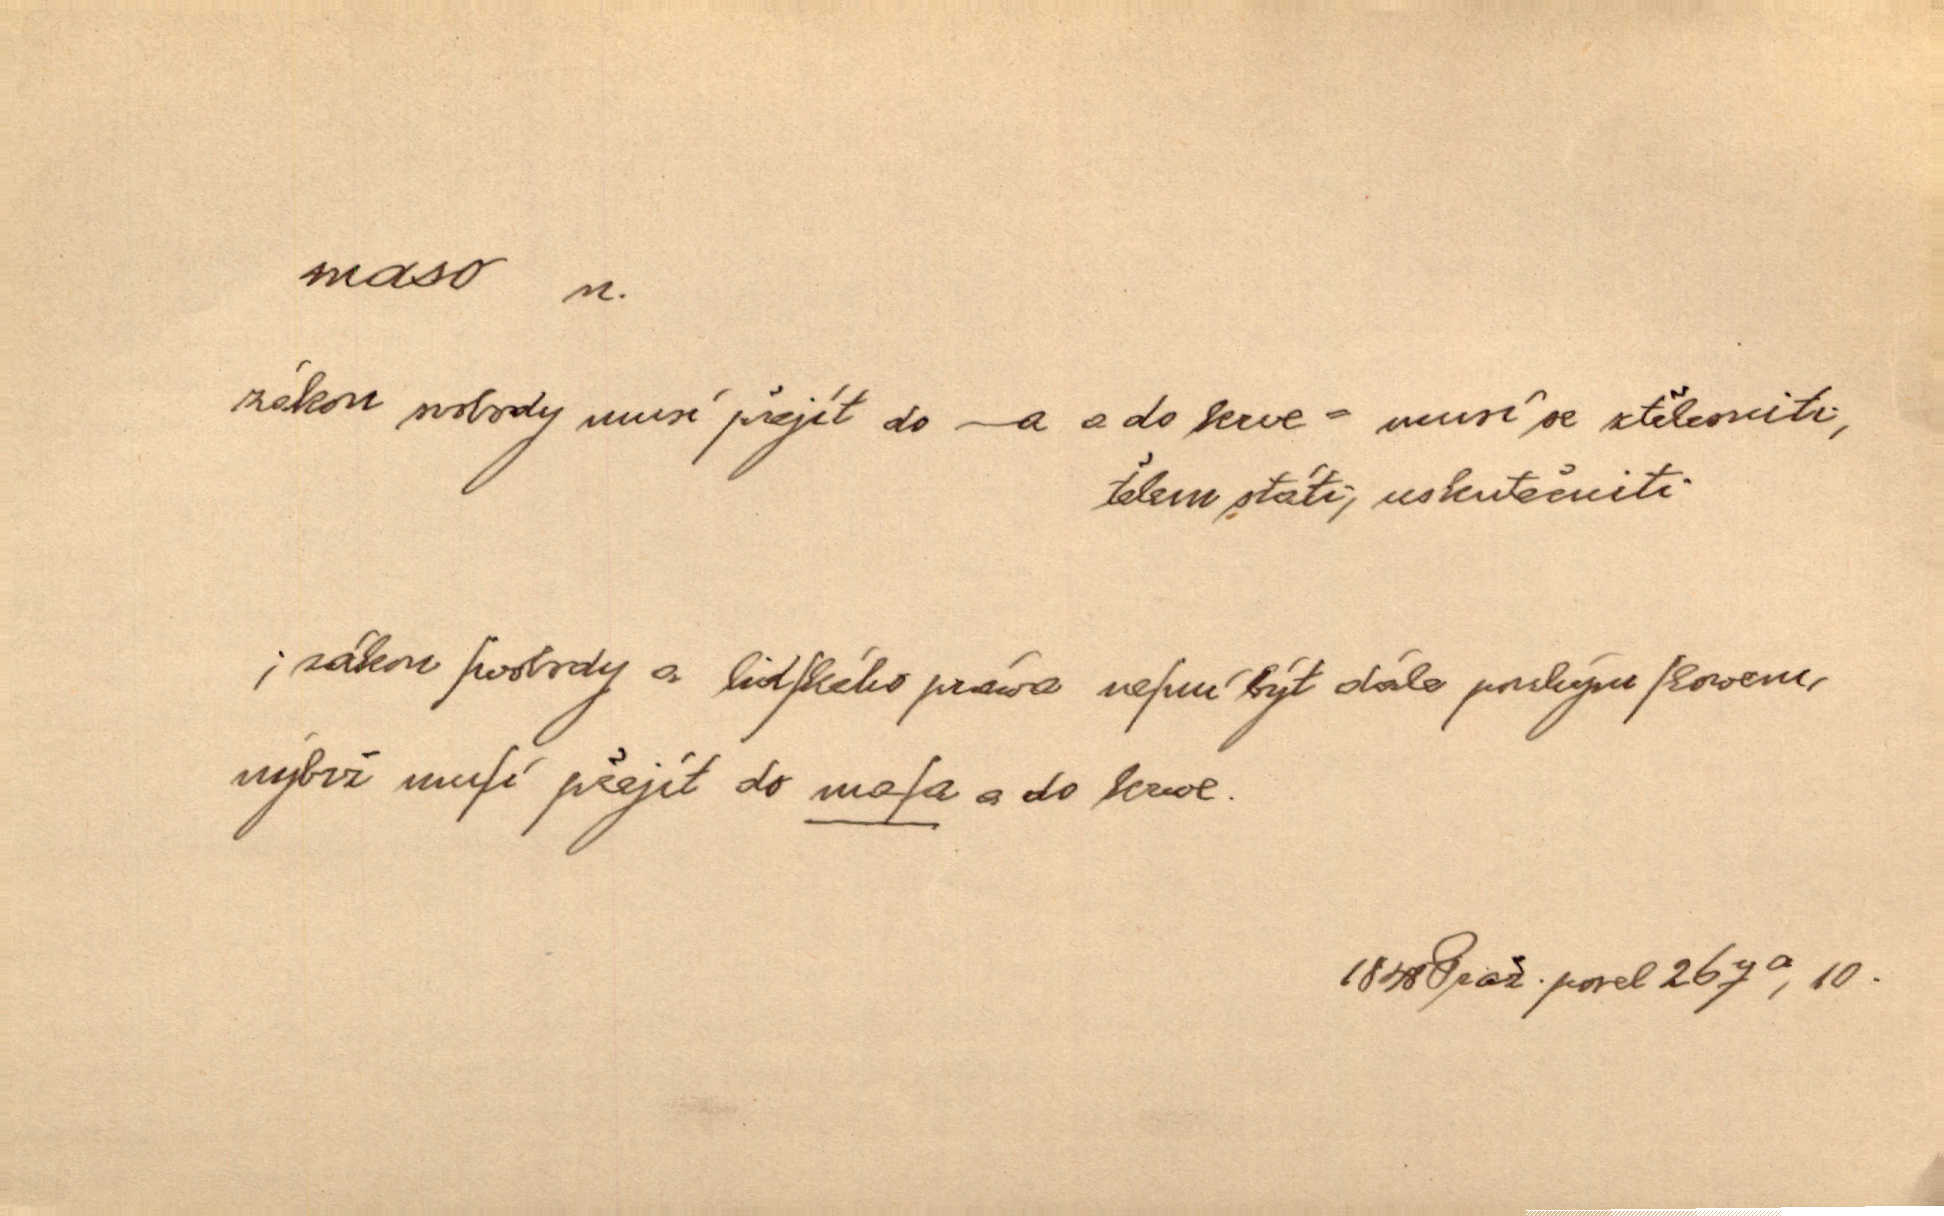 maso n.
zákon svobody musí přejít do —a a do krve = musí se ztělesniti,
tělem státi, uskutečniti
; zákon ſwobody a lidſkého práwa neſmí být dále pouhým ſlowem,
nýbrž muſí přejít do maſa a do krwe.
1848 Praž. posel 267a, 10.